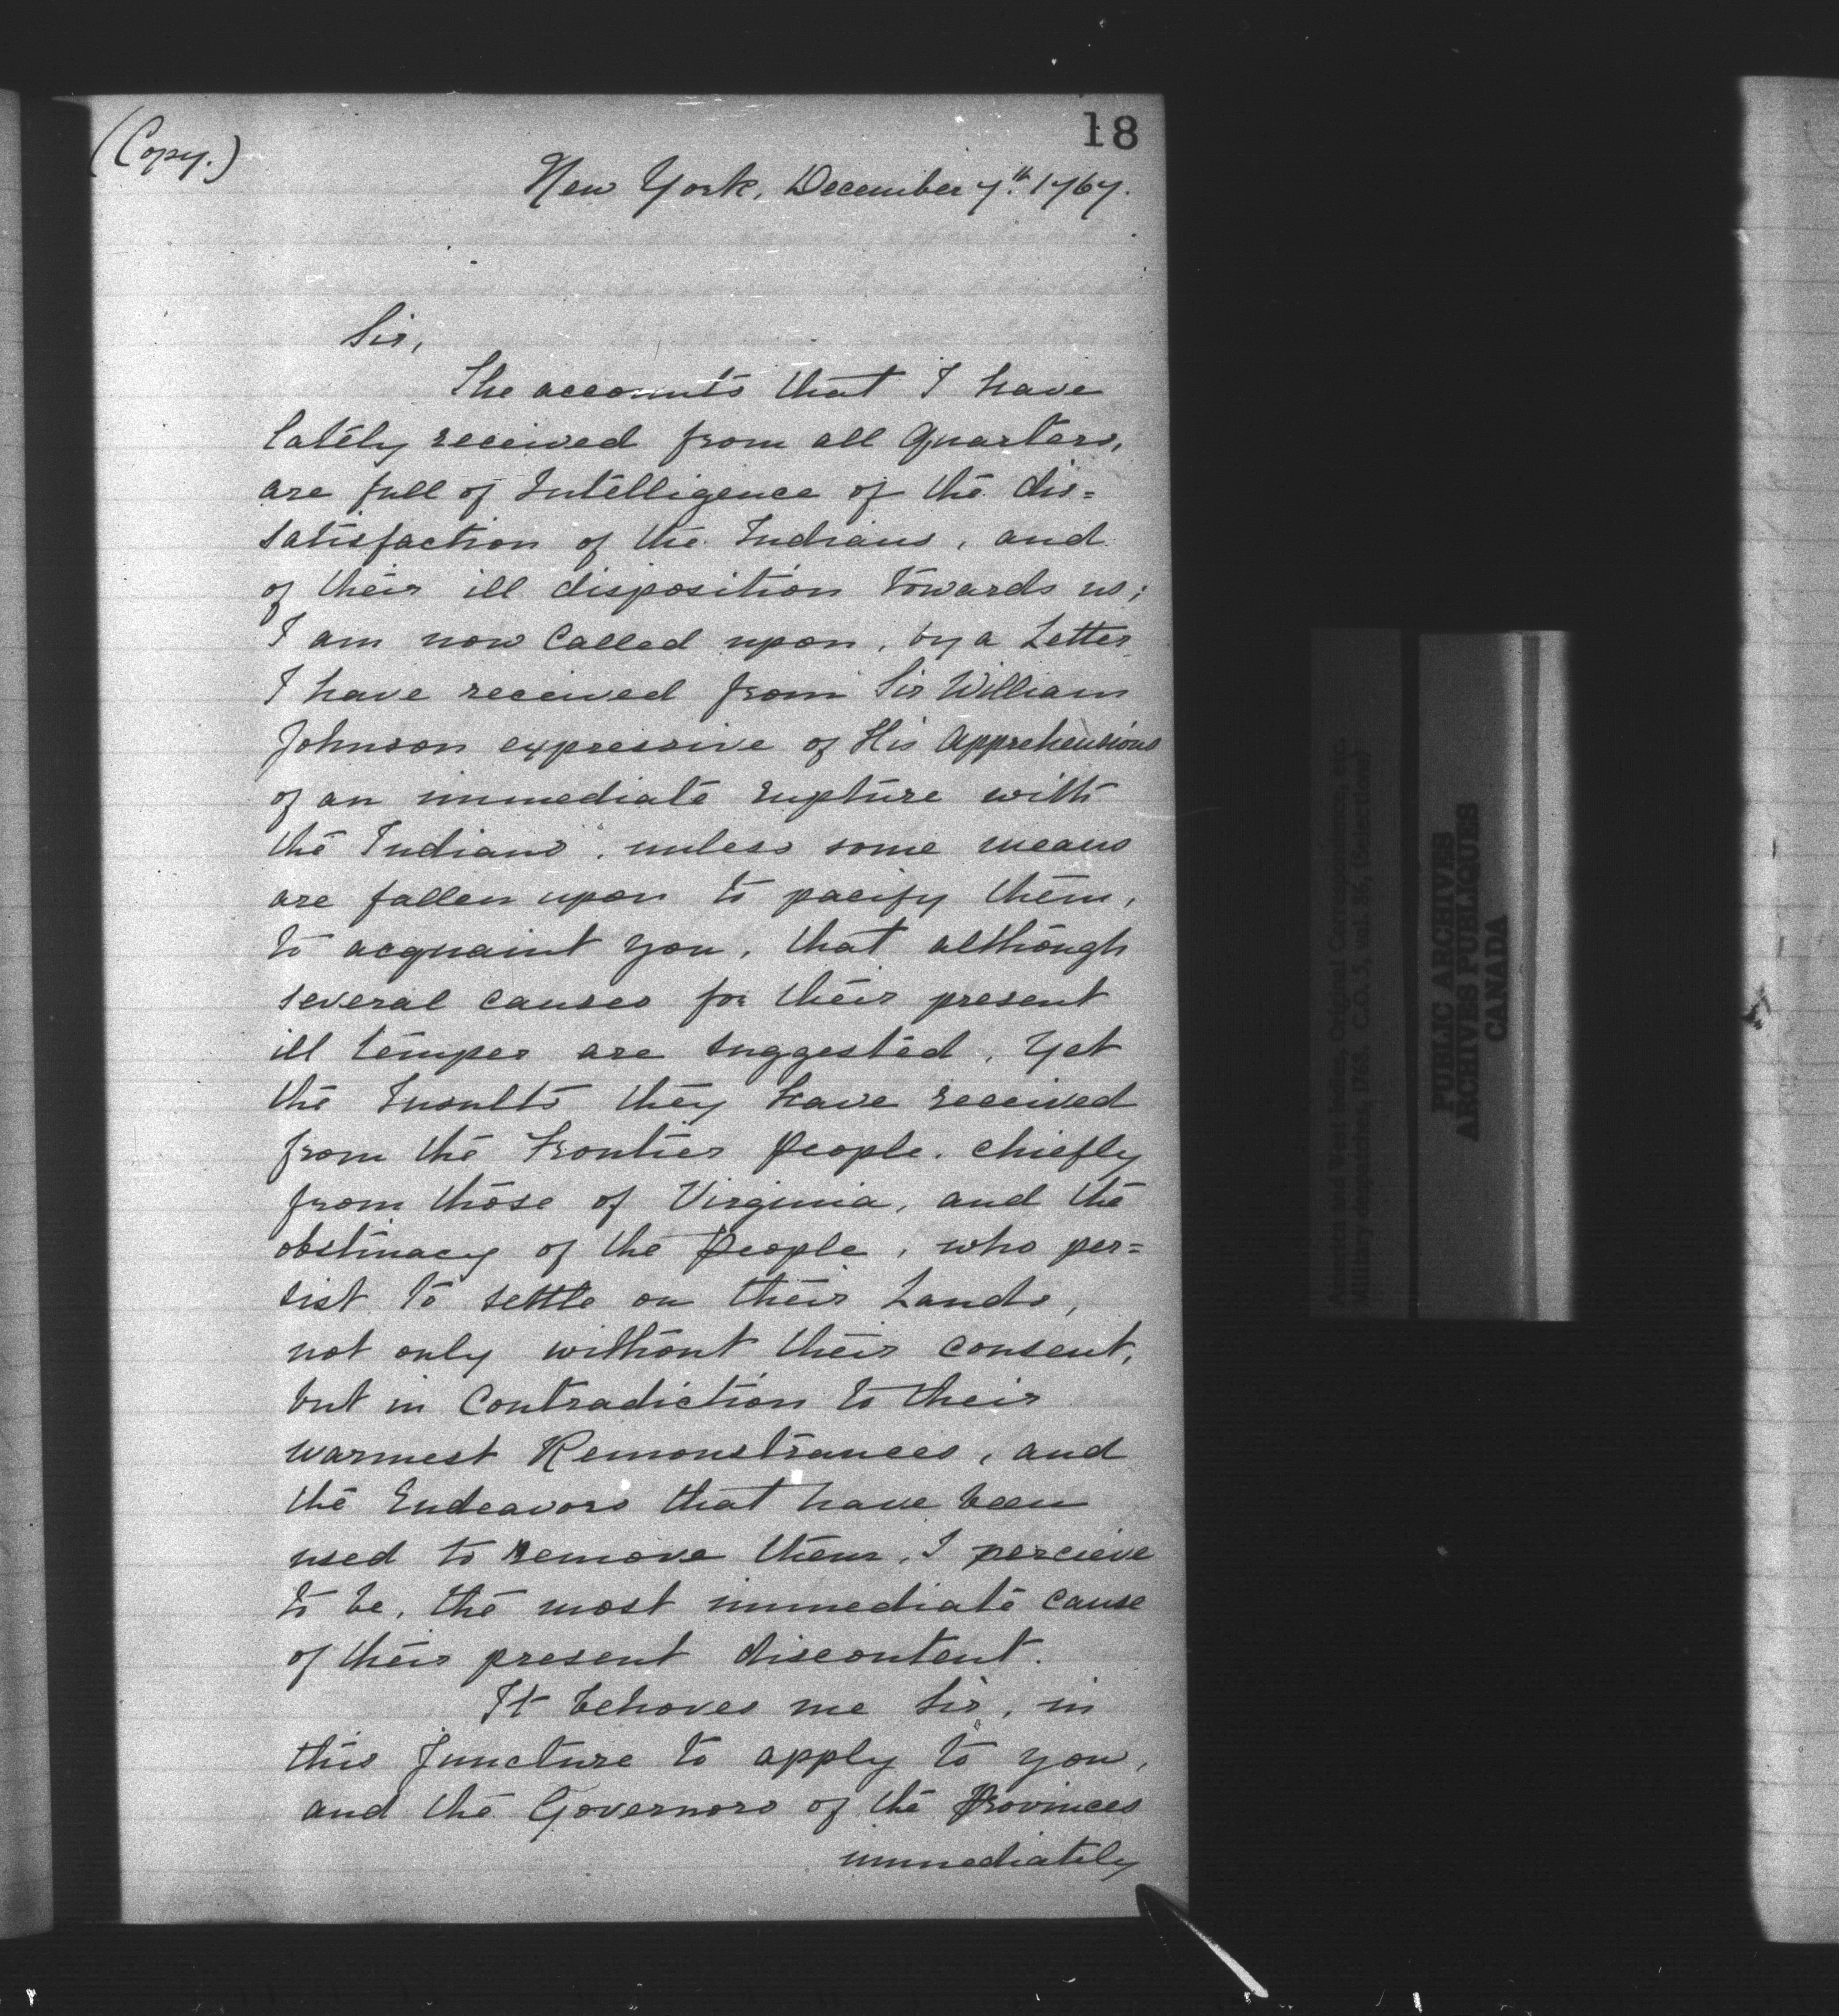 (Copy.)
18
New York, December 7th 1767.
Sir,
The accounts that I have
lately received from all Quarters,
are full of Intelligence of the dis=
satisfaction of the Indians, and
of their ill disposition towards us;
I am now Called upon, by a Letter
I have received from Sir William
Johnson expressive of His Apprehensions
of an immediate rupture with
the Indians, unless some means
are fallen upon to pacify them,
to acquaint you, that although
several causes for their present
ill temper are suggested, Yet
the Insults they have received
from the Frontier People, chiefly
from those of Virginia, and the
obstinacy of the People, who per=
sist to settle on their Lands,
not only without their consent,
but in Contradiction to their
warmest Remonstrances, and
the Endeavors that have been
used to remove them, I percieve
to be, the most immediate cause
of their present discontent.
It behoves me Sir, in
this Juncture to apply to you,
and the Governors of the Provinces
immediately
America and West Indies, Original Correspondence, etc.
Military despatches, 1768. C.O. 5, vol. 86, (Selections)
PUBLIC ARCHIVES
ARCHIVES PUBLIQUES
CANADA